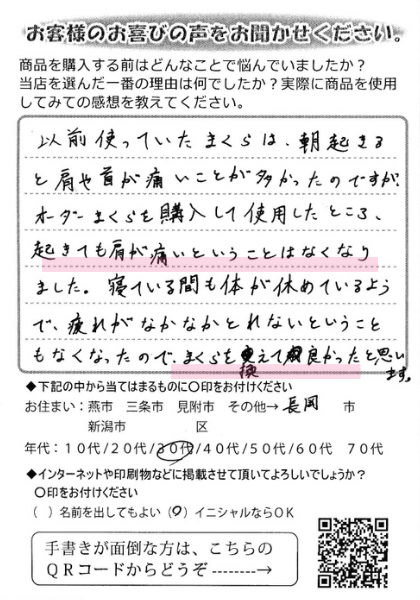 お客様のお喜びの声をお聞かせください。
商品を購入する前はどんなことで悩んでいましたか？
当店を選んだ一番の理由は何でしたか？実際に商品を使用
してみての感想を教えてください。
以前使っていたまくらは、朝起きる
と肩や首が痛いことが多かったのですが、
オーダーまくらを購入して使用したところ、
起きても肩が痛いということはなくなり
ました。寝ている間も体が休めているよう
で、疲れがなかなかとれないということ
もなくなったので、まくらを換えて良かったと思い
ます。
◆下記の中から当てはまるものに〇印をお付けください
お住まい：燕市　三条市　見附市　その他→ 長岡 市
新潟市　　　　　区
年代：１０代/２０代/３０代/４０代/５０代/６０代　７０代
◆インターネットや印刷物などに掲載させて頂いてよろしいでしょうか？
〇印をお付けください
（　）名前を出してもよい（〇）イニシャルならＯＫ
手書きが面倒な方は、こちらの
ＱＲコードからどうぞ --------→